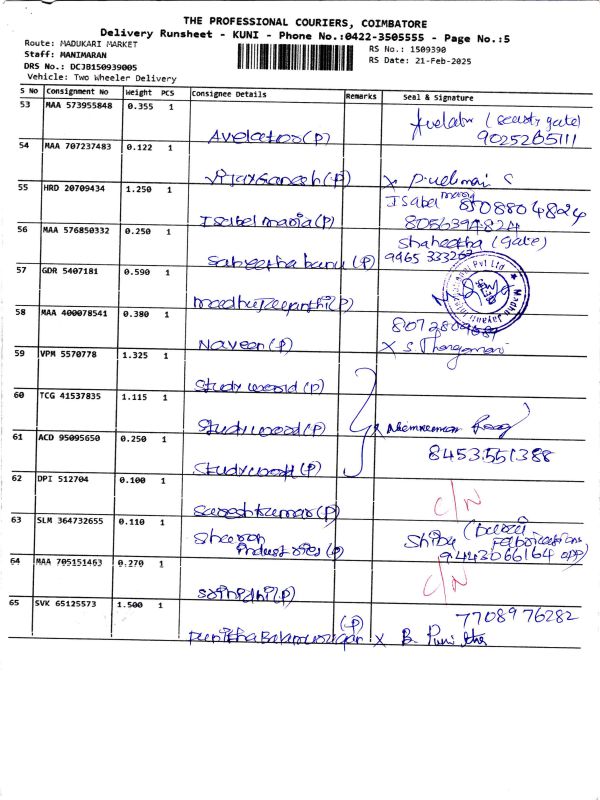 THE PROFESSIONAL COURIERS, COIMBATORE
Delivery Runsheet - KUNI - Phone No.:0422-3505555 - Page No.:5
Route: MADUKARI MARKET
RS No.: 1509390
Staff: MANIMARAN
RS Date: 21-Feb-2025
DRS No.: DCJB150939005
Vehicle: Two Wheeler Delivery
S No Consignment No Weight PCS Consignee Details Remarks Seal & Signature
53 MAA 573955848 0.355 1
(Security gate)
9025265111
Avelator(P)
54 MAA 707237483 0.122 1
Vijayganesh(P) x
55 HRD 20709434 1.250 1
Isabel 8508804824
Isabel maria(P) 8056394824
56 MAA 576850332 0.250 1
Shaheetha (Gate)
Sabeetha banu (P)
57 GDR 5407181 0.590 1
(P)
58 MAA 400078541 0.380 1
Naveen(P) x S.
59 VPM 5570778 1.325 1
Study world (P)
60 TCG 41537835 1.115 1
Study world(P) x
61 ACD 95095650 0.250 1
8453551388
Study world(P)
62 DPI 512704 0.100 1
C/N
Sureshkumar(P)
63 SLM 364732655 0.110 1
Sharon
industries (P)
Shibu
Fabrications
9443066164 opp)
64 MAA 705151463 0.270 1
C/N
(P)
65 SVK 65125573 1.500 1
7708976282
(P)
x B.